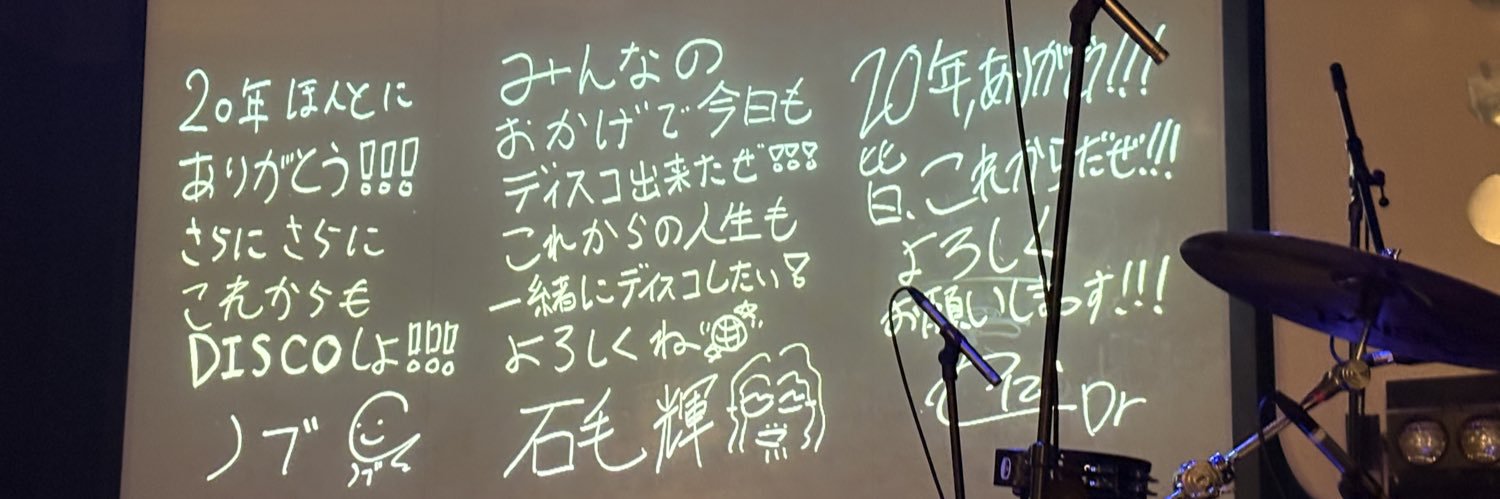 20年ほんとに
ありがとう!!!
さらにさらに
これからも
DISCOしよ!!!
ノブ
ノブ
みんなの
おかげで今日も
ディスコ出来たぜ!!!
これからの人生も
一緒にディスコしたい!
よろしくね
石毛輝
20年,ありがとう!!!
皆、これからだぜ!!!
よろしく
お願いしまっす!!!
Dr